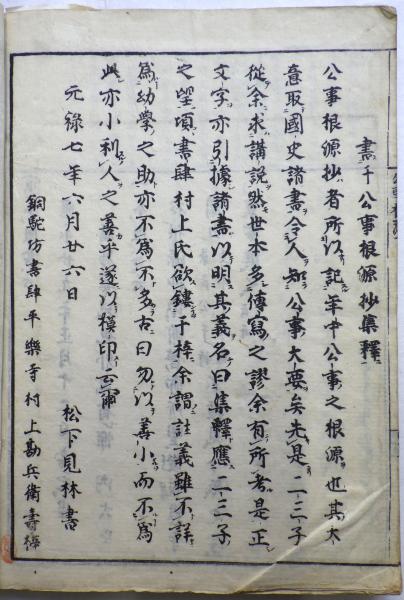 書于公事根源抄集釋
公事根源抄者所以記年中公事之根源也其大
意取國史諸書令人知公事大要矣先是二三子
從余求講説然世本多傳寫之謬余有所考是正
文字亦引據諸書以明其義名曰集釋應二三子
之望頃書肆村上氏欲鏤于梓余謂註義雖不詳
為幼學之助亦不為不多古曰勿以善小而不為
此亦小利人之善乎遂以模印云爾
元祿七年六月廿六日 松下見林書
銅駝坊書肆平樂寺村上勘兵衛壽梓